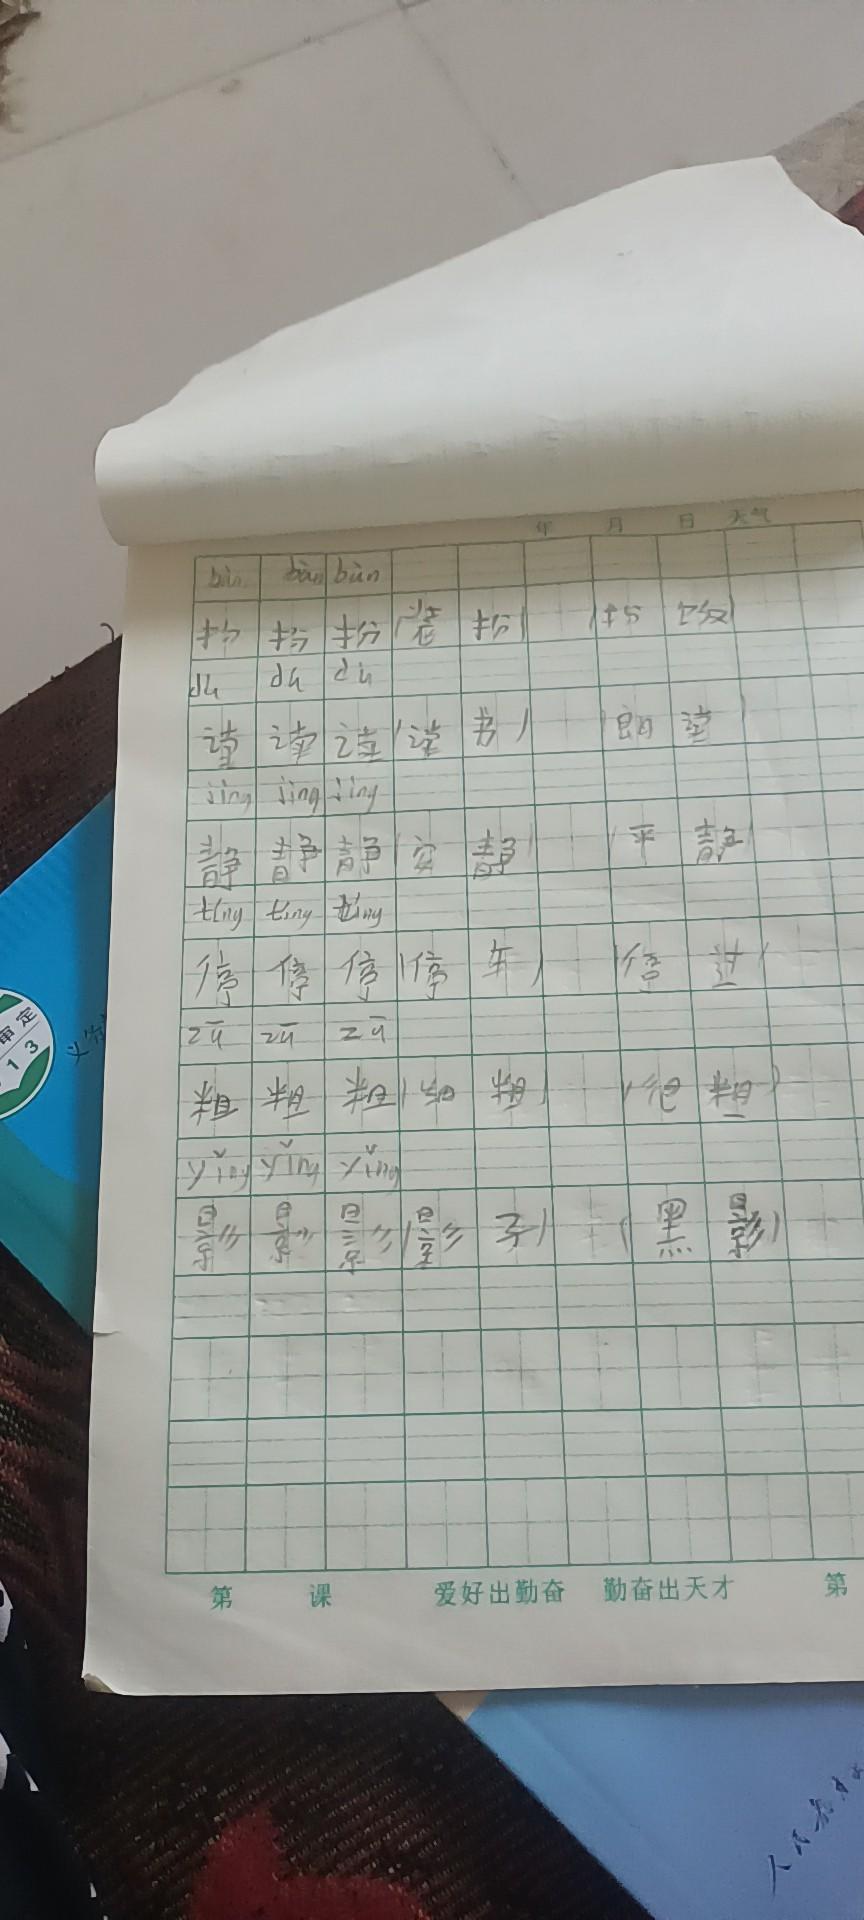 年 月 日 天气
bàn bàn bàn
扮 扮 扮(装 扮) (扮
dú dú dú
读 读 读(读 书) (朗 读)
jìng jìng jìng
静 静 静(安 静) (平 静)
tíng tíng tíng
停 停 停(停 车) (停
zū zū zū
粗 粗 粗( 粗) ( 粗)
yǐng yǐng yǐng
影 影 影(影 子) (黑 影)
第 课 爱好出勤奋 勤奋出天才 第
审定
13
义务
人民教